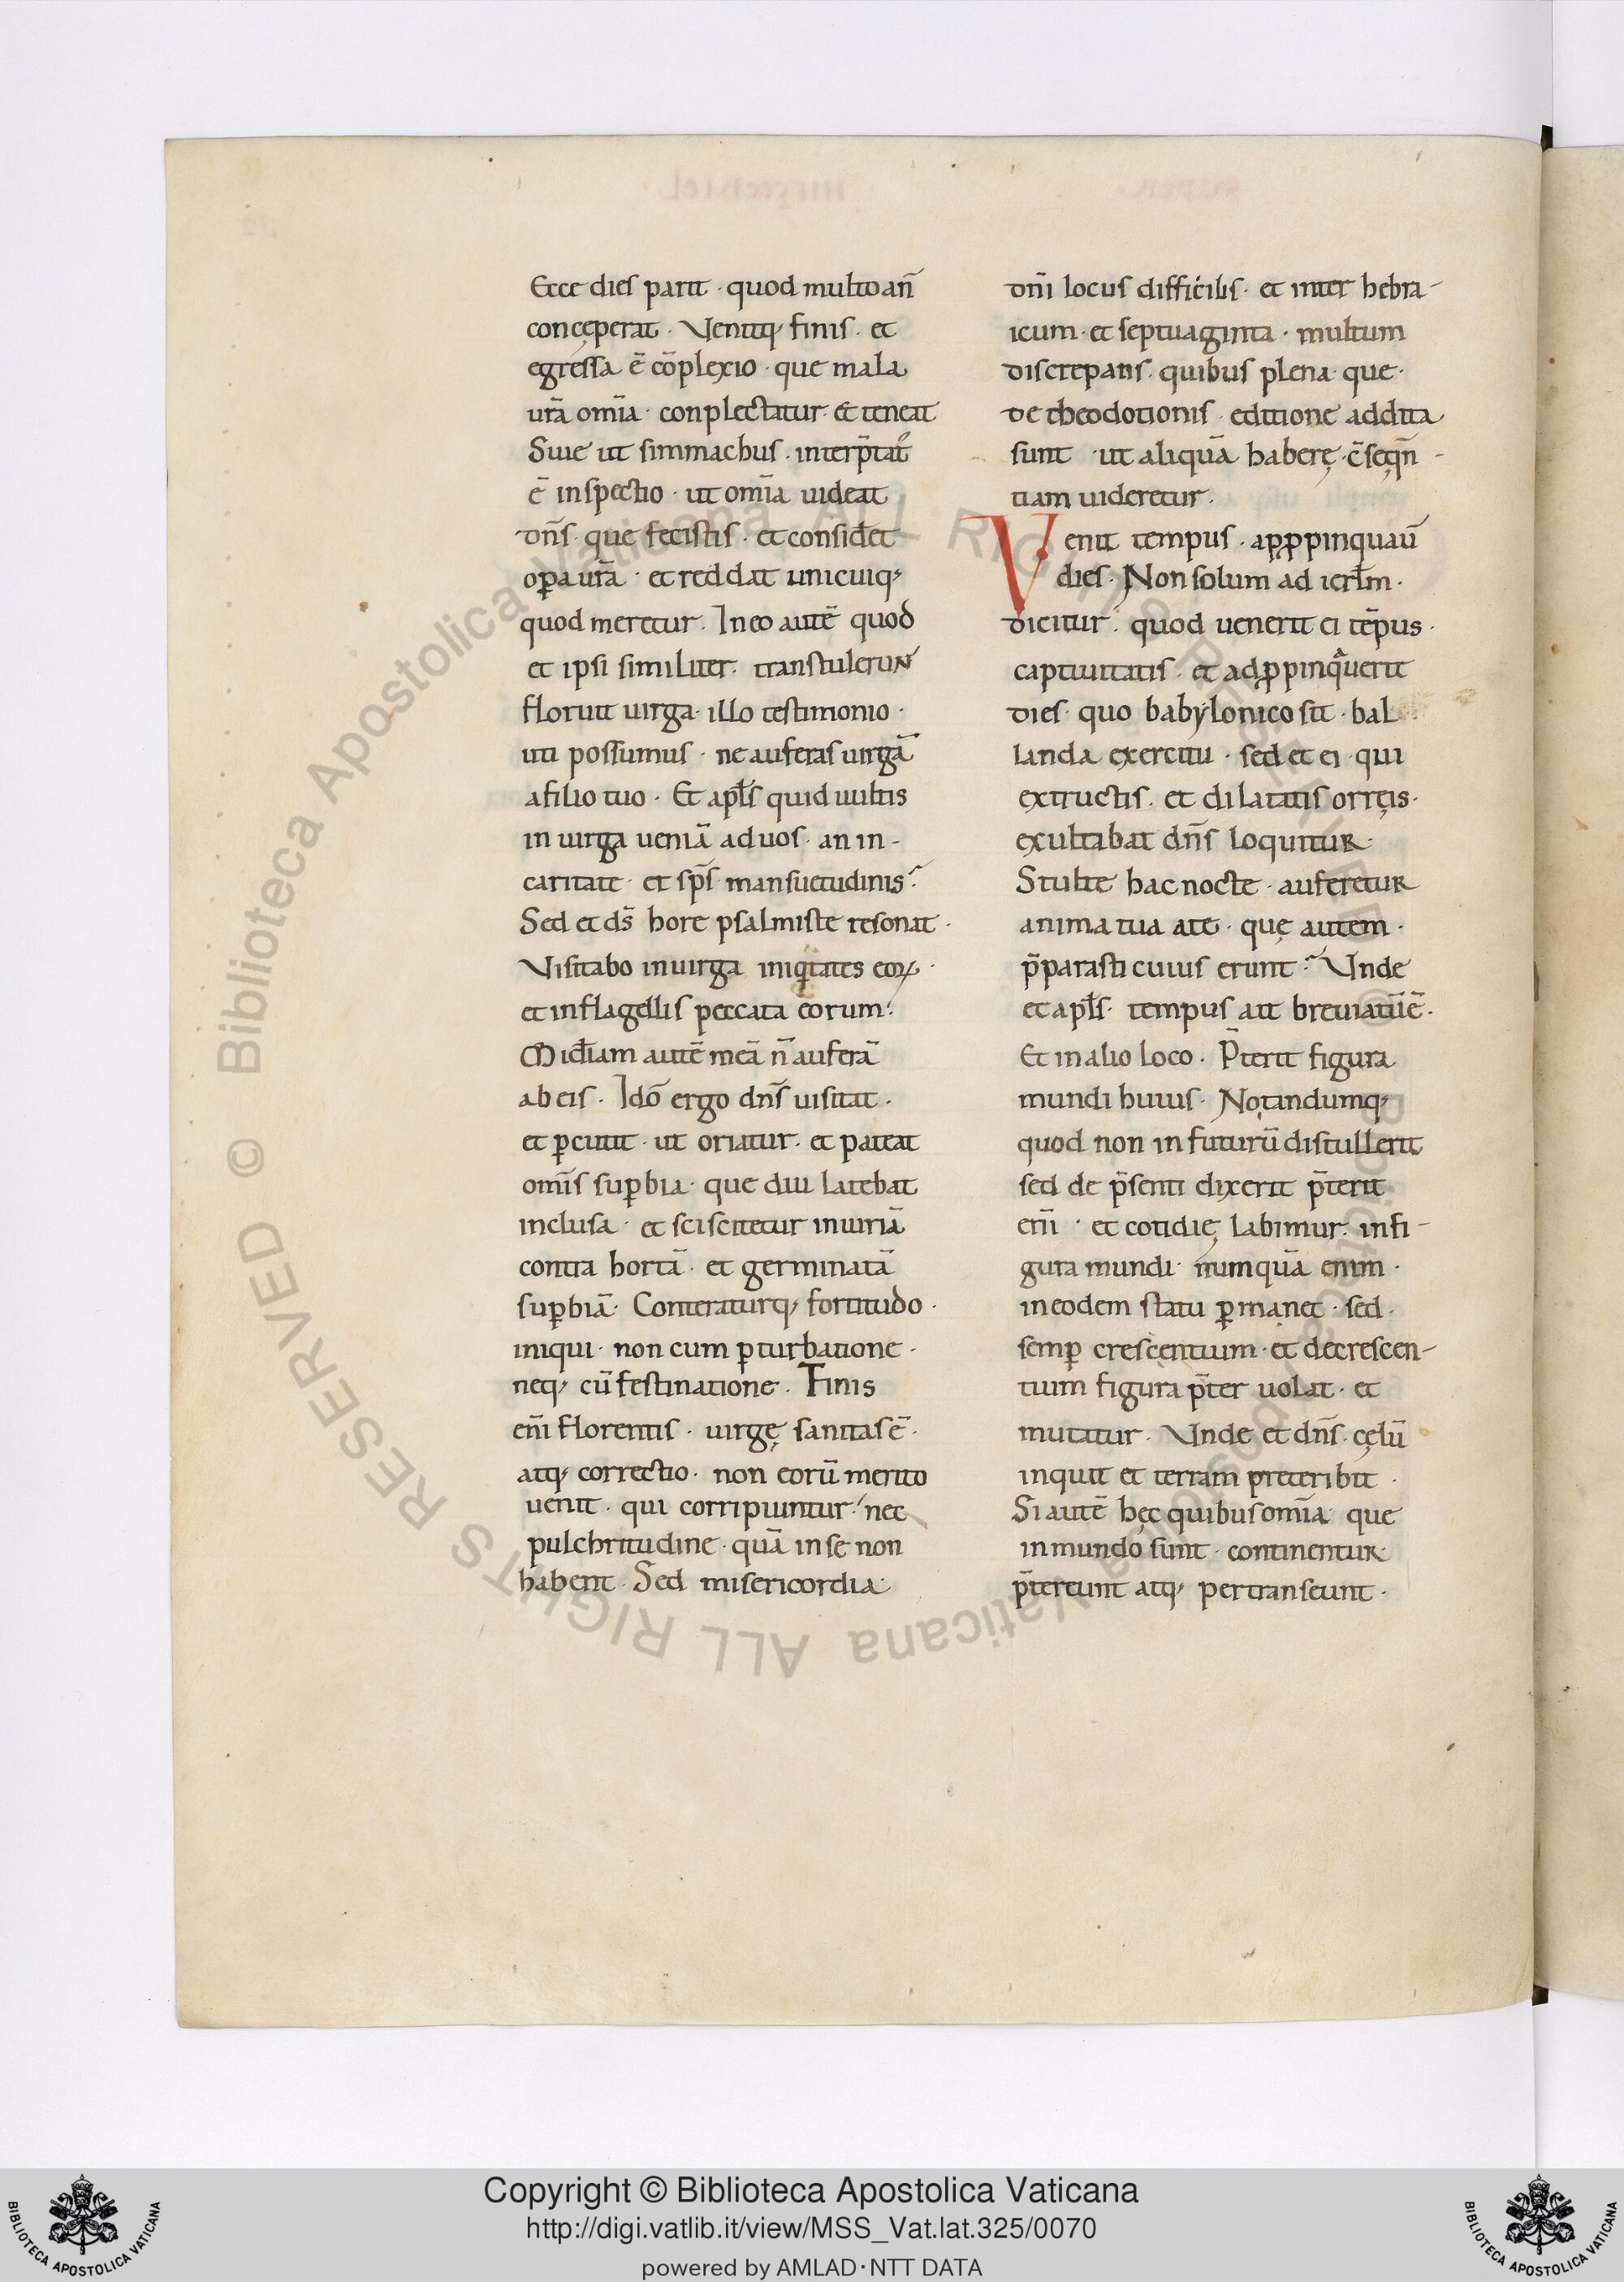 Ecce dies parit · quod multo an̄
conceperat · Venitq; finis · et
egressa ē cōplexio · que mala
ur̄a om̄ia · conplectatur · Et teneat
Siue ut simmachus · interp̄tat᷑
ē inspectio · ut om̄ia uideat
dn̄s · que fecistis · et considēt
oꝑa ur̄a · et reddat unicuiq;
quod meretur · In eo autē quod
et ipsi similiter · transtulerun
floruit uirga · illo testimonio ·
uti possumus · ne auferas uirgā
a filio tuo · Et apl̄s quid uultis
in uirga ueniā ad uos · an in-
caritate · et sp̄s mansuetudinis?
Sed et ds̄ hore psalmiste resonat ·
Visitabo in uirga iniqⁱtates eoꝝ ·
et in flagellis peccata eorum:
Mīdiam autē meā n̄ auferā
ab eis · Idō ergo dn̄s uisitat ·
et ꝑcutit · ut oriatur · et pateat
om̄is suꝑbia · que diu latebat
inclusa · et sciscitetur iniuriā
contra hortā · et germinatā
suꝑbiā · Conteraturq; fortitudo ·
iniqui · non cum ꝑturbatione ·
neq; cū festinatione · Finis
en̄i florentis · uirgę sanitas ē ·
atq; correctio · non eorū merito
uenit · qui corripiuntur · nec
pulchritudine · quā in se non
habent · Sed misericordia
dn̄i locus difficilis · et inter hebra-
icum · et septuaginta · multum
discrepans · quibus plena · que ·
de theodotionis · editione addita
sunt · ut aliquā haberę · c̄seqn̄-
tiam uideretur ·
Venit tempus · apꝓpinquau̅
dies · Non solum ad ierl̄m ·
dicitur · quod uenerit ei tēpus ·
captiuitatis · et adꝓpinqᵃuerit
dies · quo babylonico sit · bal
landa exercitu · sed et ei · qui
extructis · et dilatatis orreis ·
exultabat dn̄s loquitur ·
Stulte hac nocte · auferetur
anima tua a te · quę autem ·
p̄parasti cuius erunt? Vnde
et apl̄s · tempus ait breuiatū ē ·
Et in alio loco · P̄terit figura
mundi huius · Notandumq;
quod non in futurū distullerit
sed de p̄senti dixerit p̄terit
en̄i · et cotidię labimur · in fi-
gura mundi · numquā enim ·
in eodem statu ꝑmanet · sed ·
semꝑ crescentium · et decrescen-
tium figura p̄ter uolat · et
mutatur · Vnde et dn̄s · cęlū
inquit et terram preteribit ·
Si autē hęc quibus om̄ia que
in mundo sunt · continentur
p̄tereunt atq; pertranseunt ·
© Biblioteca Apostolica Vaticana ALL RIGHTS RESERVED
Copyright © Biblioteca Apostolica Vaticana
http://digi.vatlib.it/view/MSS_Vat.lat.325/0070
powered by AMLAD·NTT DATA
BIBLIOTECA APOSTOLICA VATICANA
BIBLIOTECA APOSTOLICA VATICANA